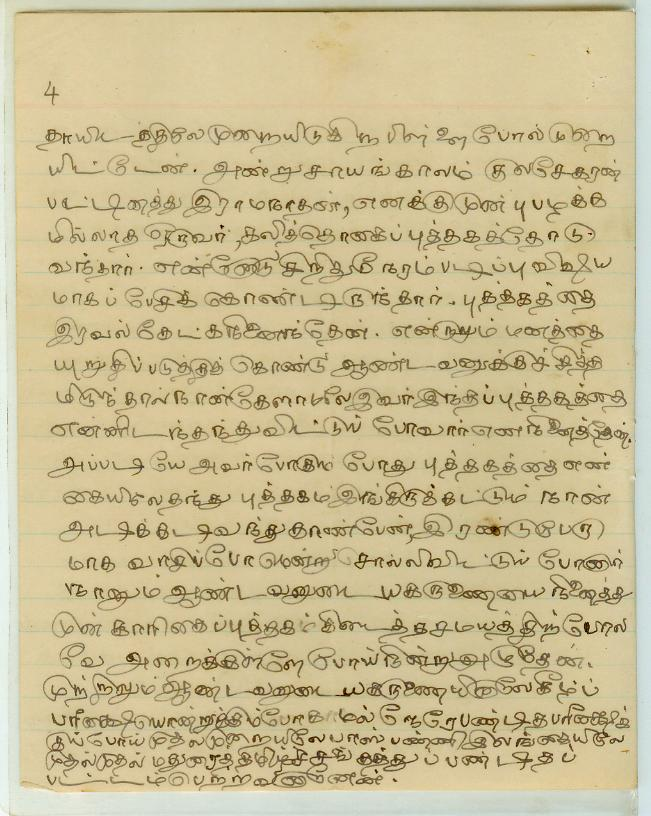 4
தாயிடத்திலே முறையிடுகிற பிள்ளை போல் முறை
யிட்டேன். அன்று சாயங்காலம் குலசேகரன்
பட்டினத்து இராமநாதன், எனக்கு முன்பு பழக்க
மில்லாத ஒருவர், கலித்தொகைப் புத்தகத்தோடு
வந்தார். என்னோடு சிறிது நேரம் படிப்பு விஷய
மாகப் பேசிக் கொண்டிருந்தார். புத்தகத்தை
இரவல் கேட்க நினைந்தேன். என்றாலும் மனத்தை
யுறுதிப்படுத்துக் கொண்டு ஆண்டவனுக்குச் சித்த
மிருந்தால் நான் கேளாமலே இவர் இந்தப் புத்தகத்தை
என்னிடந்தந்து விட்டுப் போவார் என நினைத்தேன்.
அப்படியே அவர் போகும் போது புத்தகத்தை என்
கையிலே தந்து புத்தகம் இங்கிருக்கட்டும் நான்
அடிக்கடி வந்து காண்பேன், இரண்டு பேரு
மாக வாசிப்போமென்று சொல்லிவிட்டுப் போனார்
நானும் ஆண்டவனுடைய கருணையை நினைத்து
முன் காரிகைப் புத்தகம் கிடைத்த சமயத்திற் போல
வே அறைக்குள்ளே போய் நின்று அழுதேன்.
முற்றிலும் ஆண்டவனுடைய கருணையினாலே கீழ்ப்
பரீக்ஷையொன்றுக்கும் போகாமல் நேரே பண்டித பரீக்ஷைக்
குப் போய் முதல் முறையிலே பாஸ் பண்ணி இலங்கையிலே
முதல் முதல் மதுரைத் தமிழ்ச் சங்கத்துப் பண்டிதப்
பட்டம் பெற்றவனானேன்.